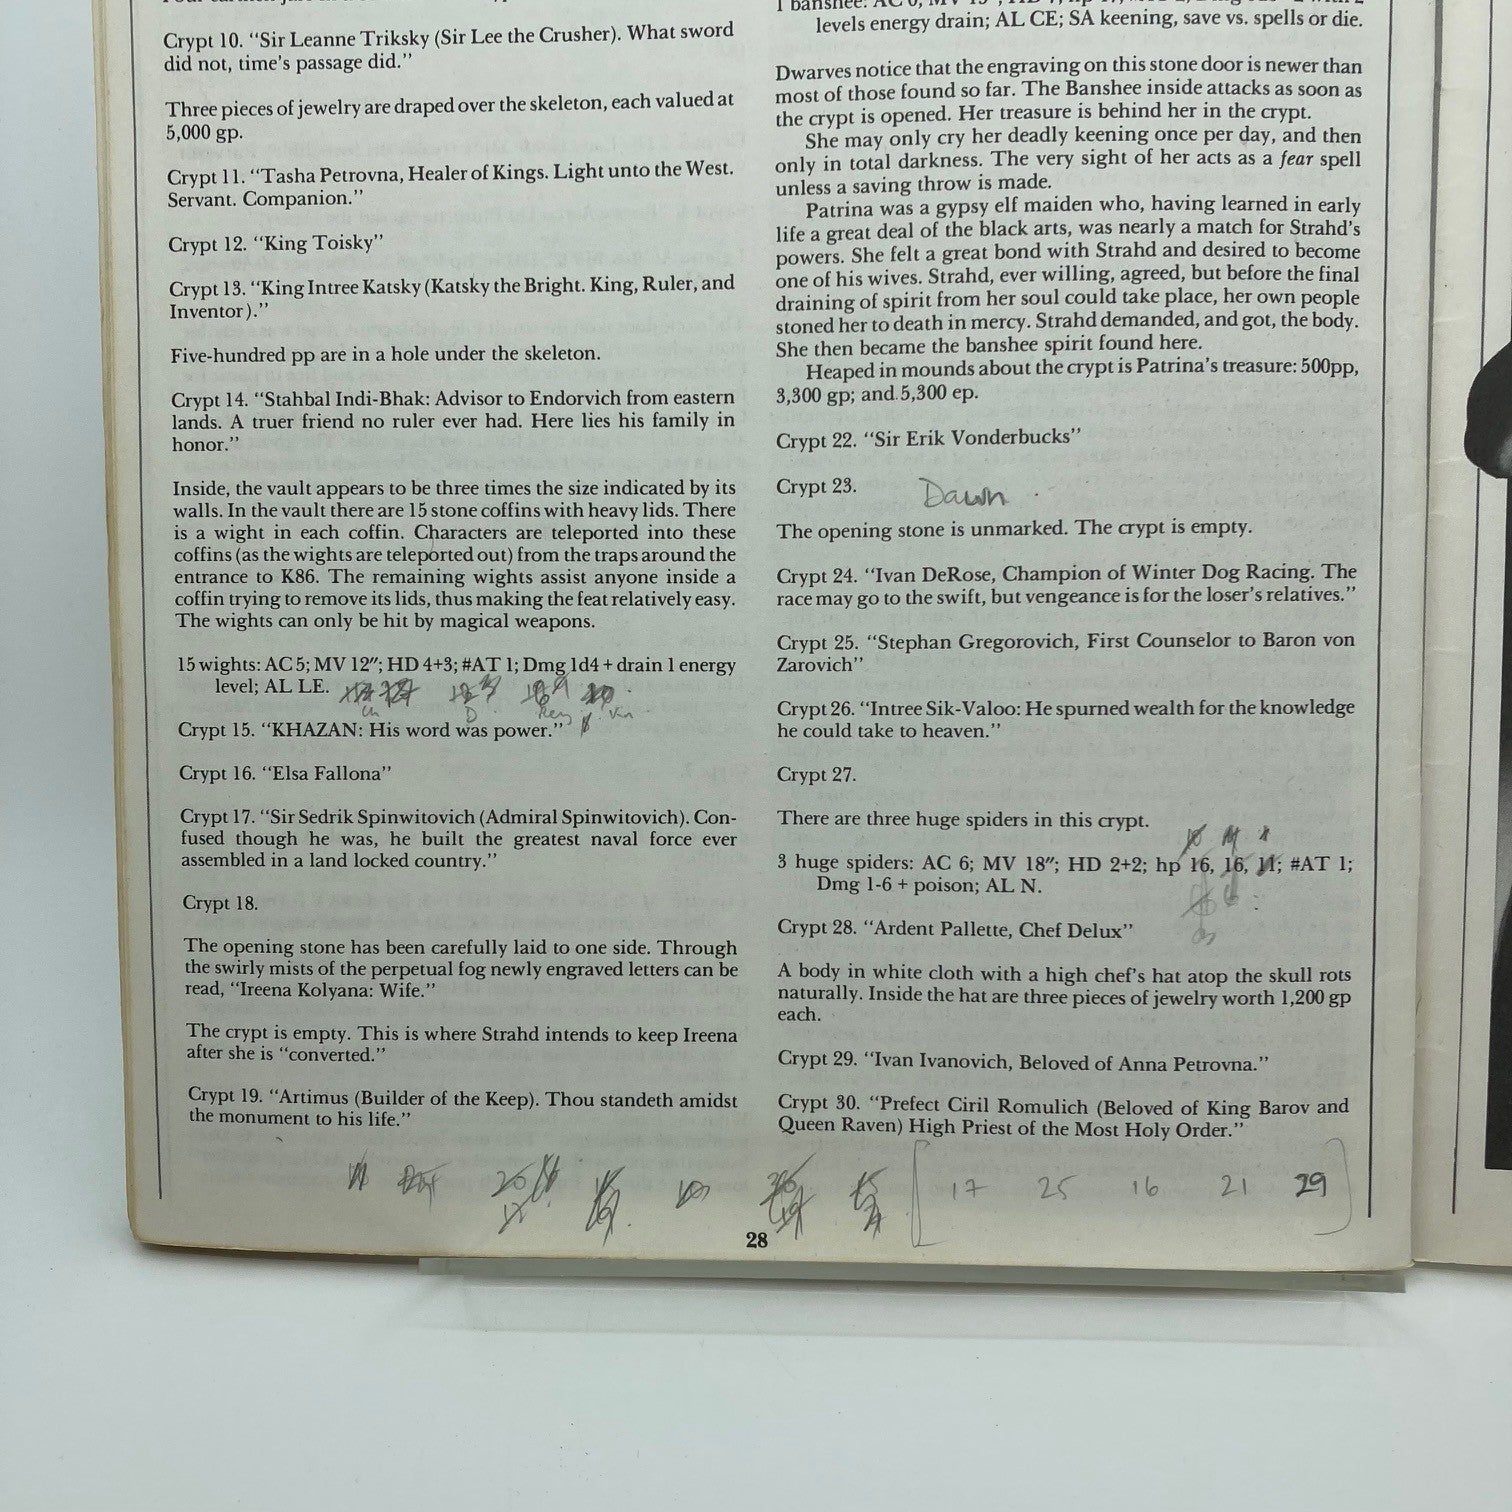 Crypt 10. “Sir Leanne Triksky (Sir Lee the Crusher). What sword
did not, time’s passage did.”
Three pieces of jewelry are draped over the skeleton, each valued at
5,000 gp.
Crypt 11. “Tasha Petrovna, Healer of Kings. Light unto the West.
Servant. Companion.”
Crypt 12. “King Toisky”
Crypt 13. “King Intree Katsky (Katsky the Bright. King, Ruler, and
Inventor).”
Five-hundred pp are in a hole under the skeleton.
Crypt 14. “Stahbal Indi-Bhak: Advisor to Endorvich from eastern
lands. A truer friend no ruler ever had. Here lies his family in
honor.”
Inside, the vault appears to be three times the size indicated by its
walls. In the vault there are 15 stone coffins with heavy lids. There
is a wight in each coffin. Characters are teleported into these
coffins (as the wights are teleported out) from the traps around the
entrance to K86. The remaining wights assist anyone inside a
coffin trying to remove its lids, thus making the feat relatively easy.
The wights can only be hit by magical weapons.
15 wights: AC 5; MV 12″; HD 4+3; #AT 1; Dmg 1d4 + drain 1 energy
level; AL LE.
Crypt 15. “KHAZAN: His word was power.”
Crypt 16. “Elsa Fallona”
Crypt 17. “Sir Sedrik Spinwitovich (Admiral Spinwitovich). Con-
fused though he was, he built the greatest naval force ever
assembled in a land locked country.”
Crypt 18.
The opening stone has been carefully laid to one side. Through
the swirly mists of the perpetual fog newly engraved letters can be
read, “Ireena Kolyana: Wife.”
The crypt is empty. This is where Strahd intends to keep Ireena
after she is “converted.”
Crypt 19. “Artimus (Builder of the Keep). Thou standeth amidst
the monument to his life.”
1 banshee: AC 0,
levels energy drain; AL CE; SA keening, save vs. spells or die.
Dwarves notice that the engraving on this stone door is newer than
most of those found so far. The Banshee inside attacks as soon as
the crypt is opened. Her treasure is behind her in the crypt.
She may only cry her deadly keening once per day, and then
only in total darkness. The very sight of her acts as a fear spell
unless a saving throw is made.
Patrina was a gypsy elf maiden who, having learned in early
life a great deal of the black arts, was nearly a match for Strahd’s
powers. She felt a great bond with Strahd and desired to become
one of his wives. Strahd, ever willing, agreed, but before the final
draining of spirit from her soul could take place, her own people
stoned her to death in mercy. Strahd demanded, and got, the body.
She then became the banshee spirit found here.
Heaped in mounds about the crypt is Patrina’s treasure: 500pp,
3,300 gp; and 5,300 ep.
Crypt 22. “Sir Erik Vonderbucks”
Crypt 23. Dawn
The opening stone is unmarked. The crypt is empty.
Crypt 24. “Ivan DeRose, Champion of Winter Dog Racing. The
race may go to the swift, but vengeance is for the loser’s relatives.”
Crypt 25. “Stephan Gregorovich, First Counselor to Baron von
Zarovich”
Crypt 26. “Intree Sik-Valoo: He spurned wealth for the knowledge
he could take to heaven.”
Crypt 27.
There are three huge spiders in this crypt.
3 huge spiders: AC 6; MV 18″; HD 2+2; hp 16, 16, 11; #AT 1;
Dmg 1-6 + poison; AL N.
Crypt 28. “Ardent Pallette, Chef Delux”
A body in white cloth with a high chef’s hat atop the skull rots
naturally. Inside the hat are three pieces of jewelry worth 1,200 gp
each.
Crypt 29. “Ivan Ivanovich, Beloved of Anna Petrovna.”
Crypt 30. “Prefect Ciril Romulich (Beloved of King Barov and
Queen Raven) High Priest of the Most Holy Order.”
17 25 16 21 29
28